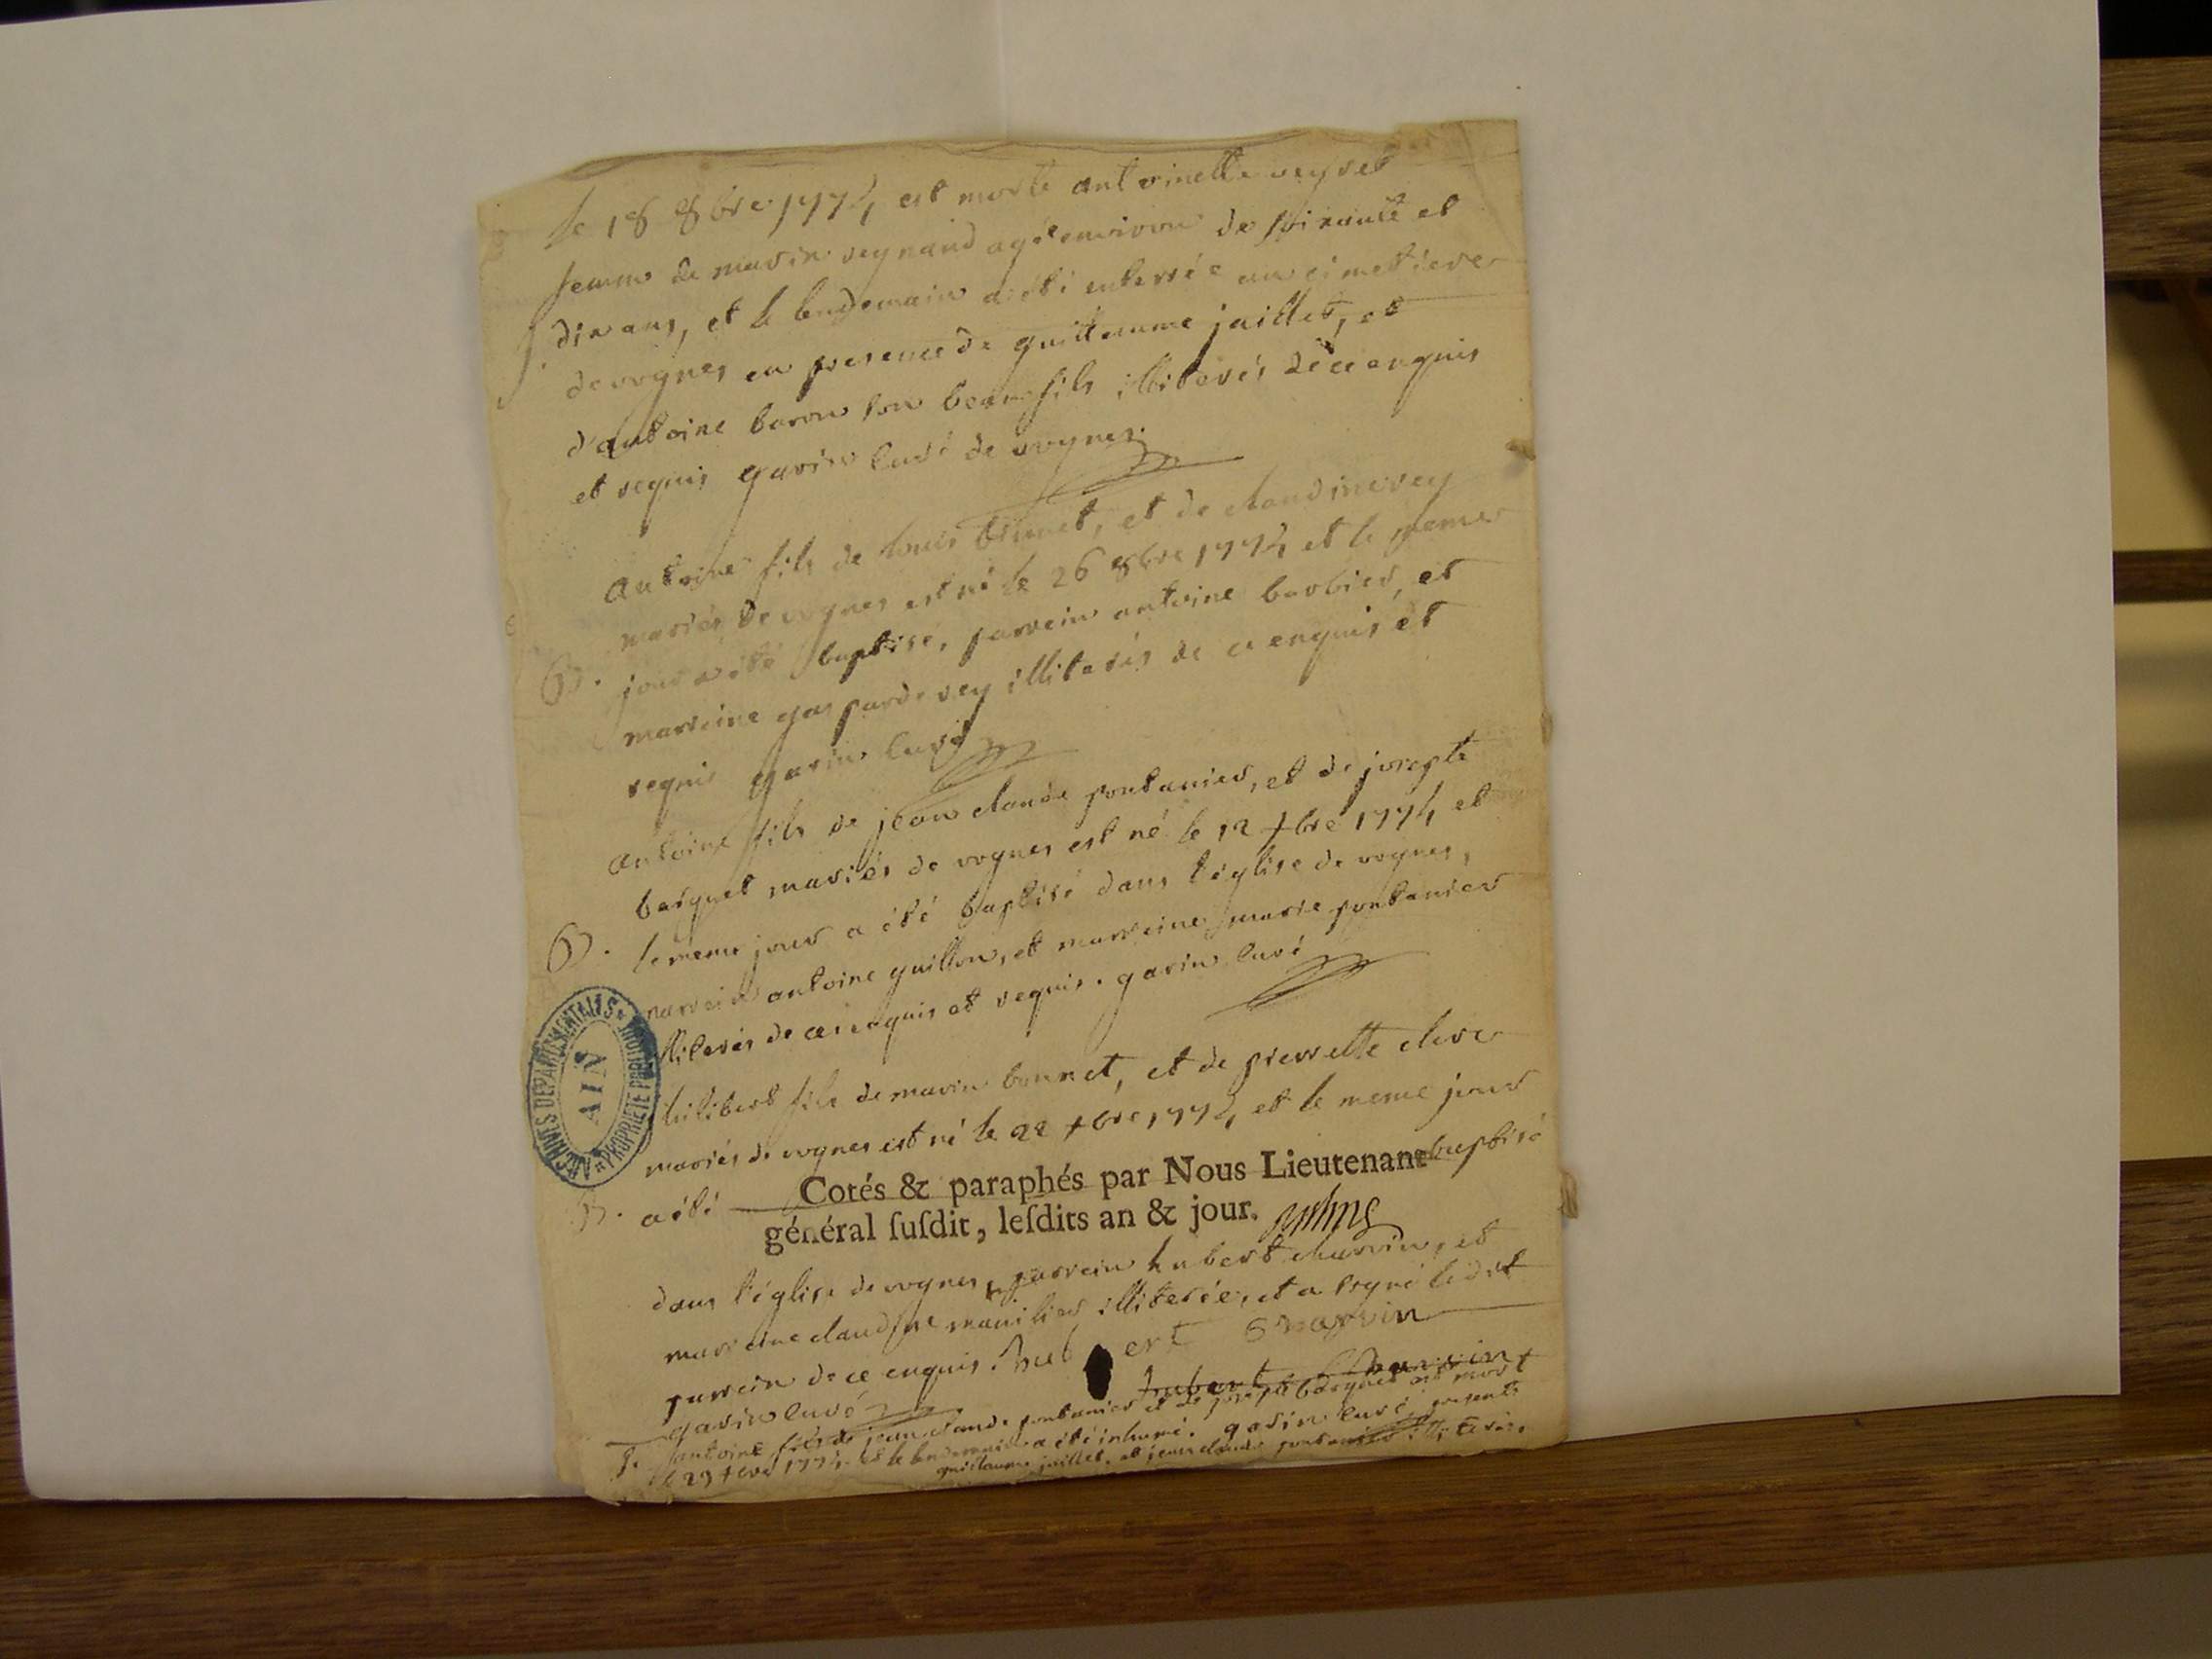 le 18 8bre 1774 est morte antoinette veyret
femme de marin reynaud agée environ de soixante et
dix ans, et le lendemain a été enterrée au cimetiere
de vognes en presence de guillaume jaillet, et
d'antoine baron son beau fils illiterés de ce enquis
et requis garin curé de vognes.
antoine fils de louis brunet, et de claudine rey
mariés de vognes est né le 26 8bre 1774 et le meme
B. jour a été baptisé, parrein antoine barbier, et
marreine gasparde rey illiterés de ce enquis et
requis garin curé
antoine fils de jean claude pontanier, et de josepte
barquet mariés de vognes est né le 12 xbre 1774 et
B. le meme jour a été baptisé dans l'église de vognes,
parrein antoine guillon, et marreine marie pontanier
illiterés de ce enquis et requis. garin curé
philibert fils de marin bonnet, et de pierrette clere
mariés de vognes est né le 22 xbre 1774 et le meme jour
B. a été baptisé
Cotés & paraphés par Nous Lieutenant
général ſuſdit, leſdits an & jour.
dans l'église de vognes, parrein hubert charvin, et
marreine claudine illiterée, et a signé ledit
parrein de ce enquis. hubert charvin
hubert charvin
garin curé
antoine fils de jean claude pontanier et de josepte barquet est mort
le 29 xbre 1774 et le lendemain a été inhumé. garin curé, presents
guillaume jaillet, et jean claude pontanier illiterés.
ARCHIVES DEPARTEMENTALES
AIN
PROPRIETE PUBLIQUE